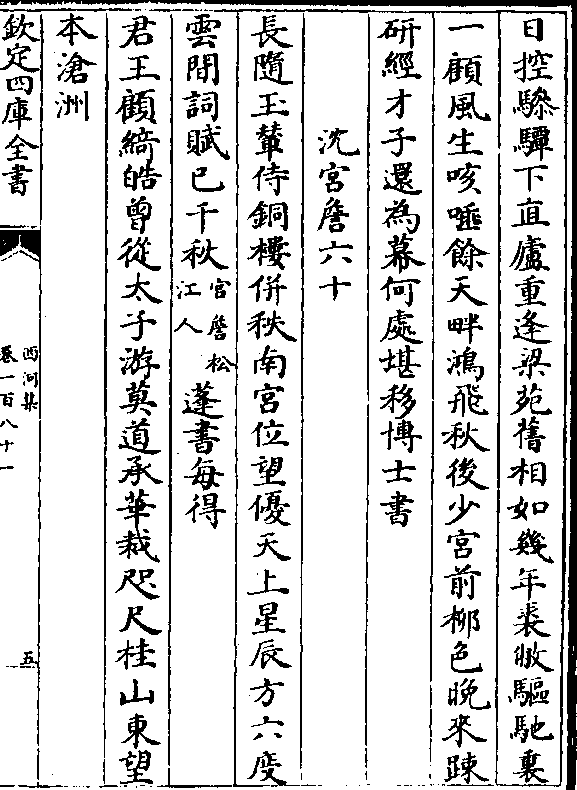 日控驂驔下直廬重逢梁苑舊相如幾年裘敝驅馳裏
一顧風生咳唾餘天畔鴻飛秋後少宮前柳色晚來踈
研經才子還為幕何處堪移博士書
沈宮詹六十
長隨玉輦侍銅樓併秩南宮位望優天上星辰方六度
雲間詞賦已千秋宮詹松江人蓬書每得
君王顧綺皓曾從太子游莫道承華裁咫尺桂山東望
本滄洲
欽定四庫全書
西河集
卷一百八十一
五